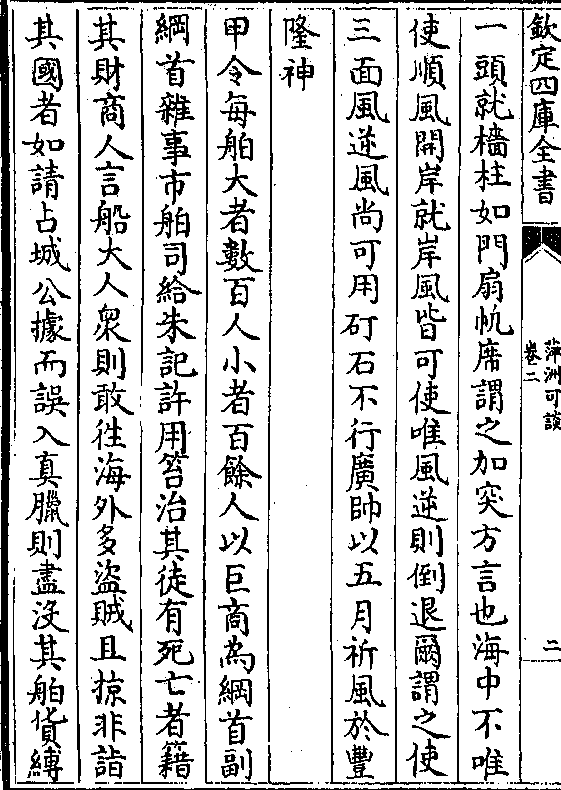 欽定四庫全書
萍洲可談
卷二
二
一頭就檣柱如門扇帆席謂之加突方言也海中不唯
使順風開岸就岸風皆可使唯風逆則倒退爾謂之使
三面風逆風尚可用矴石不行廣帥以五月祈風於豐
隆神
甲令每舶大者數百人小者百餘人以巨商為綱首副
綱首雜事市舶司給朱記許用笞治其徒有死亡者籍
其財商人言船大人衆則敢徃海外多盜賊且掠非詣
其國者如請占城公據而誤入真臘則盡沒其舶貨縛